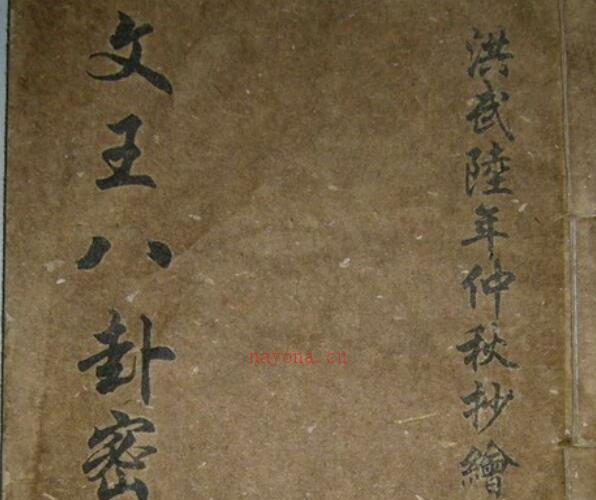 洪武陸年仲秋抄繪
文王八卦密
nayona.cn